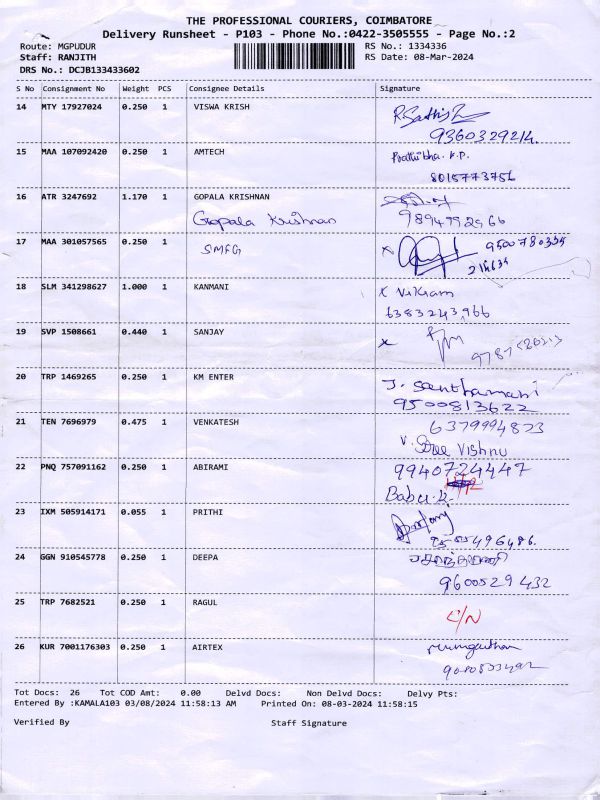 THE PROFESSIONAL COURIERS, COIMBATORE
Delivery Runsheet - P103 - Phone No.:0422-3505555 - Page No.:2
Route: MGPUDUR RS No.: 1334336
Staff: RANJITH RS Date: 08-Mar-2024
DRS No.: DCJB133433602
S No Consignment No Weight PCS Consignee Details Signature
14 MTY 17927024 0.250 1 VISWA KRISH
9360329214.
15 MAA 107092420 0.250 1 AMTECH Prathibha. K.P.
8015773756
16 ATR 3247692 1.170 1 GOPALA KRISHNAN
Gopala Krishnan
17 MAA 301057565 0.250 1
SMFG x
18 SLM 341298627 1.000 1 KANMANI x Vikram
6383243966
19 SVP 1508661 0.440 1 SANJAY x
20 TRP 1469265 0.250 1 KM ENTER J. Santhamani
9500813622
21 TEN 7696979 0.475 1 VENKATESH 6379994823
V. Sree Vishnu
22 PNQ 757091162 0.250 1 ABIRAMI 9940724447
Babu.K.
23 IXM 505914171 0.055 1 PRITHI
24 GGN 910545778 0.250 1 DEEPA
9600529432
25 TRP 7682521 0.250 1 RAGUL C/N
26 KUR 7001176303 0.250 1 AIRTEX
Tot Docs: 26 Tot COD Amt: 0.00 Delvd Docs: Non Delvd Docs: Delvy Pts:
Entered By :KAMALA103 03/08/2024 11:58:13 AM Printed On: 08-03-2024 11:58:15
Verified By Staff Signature